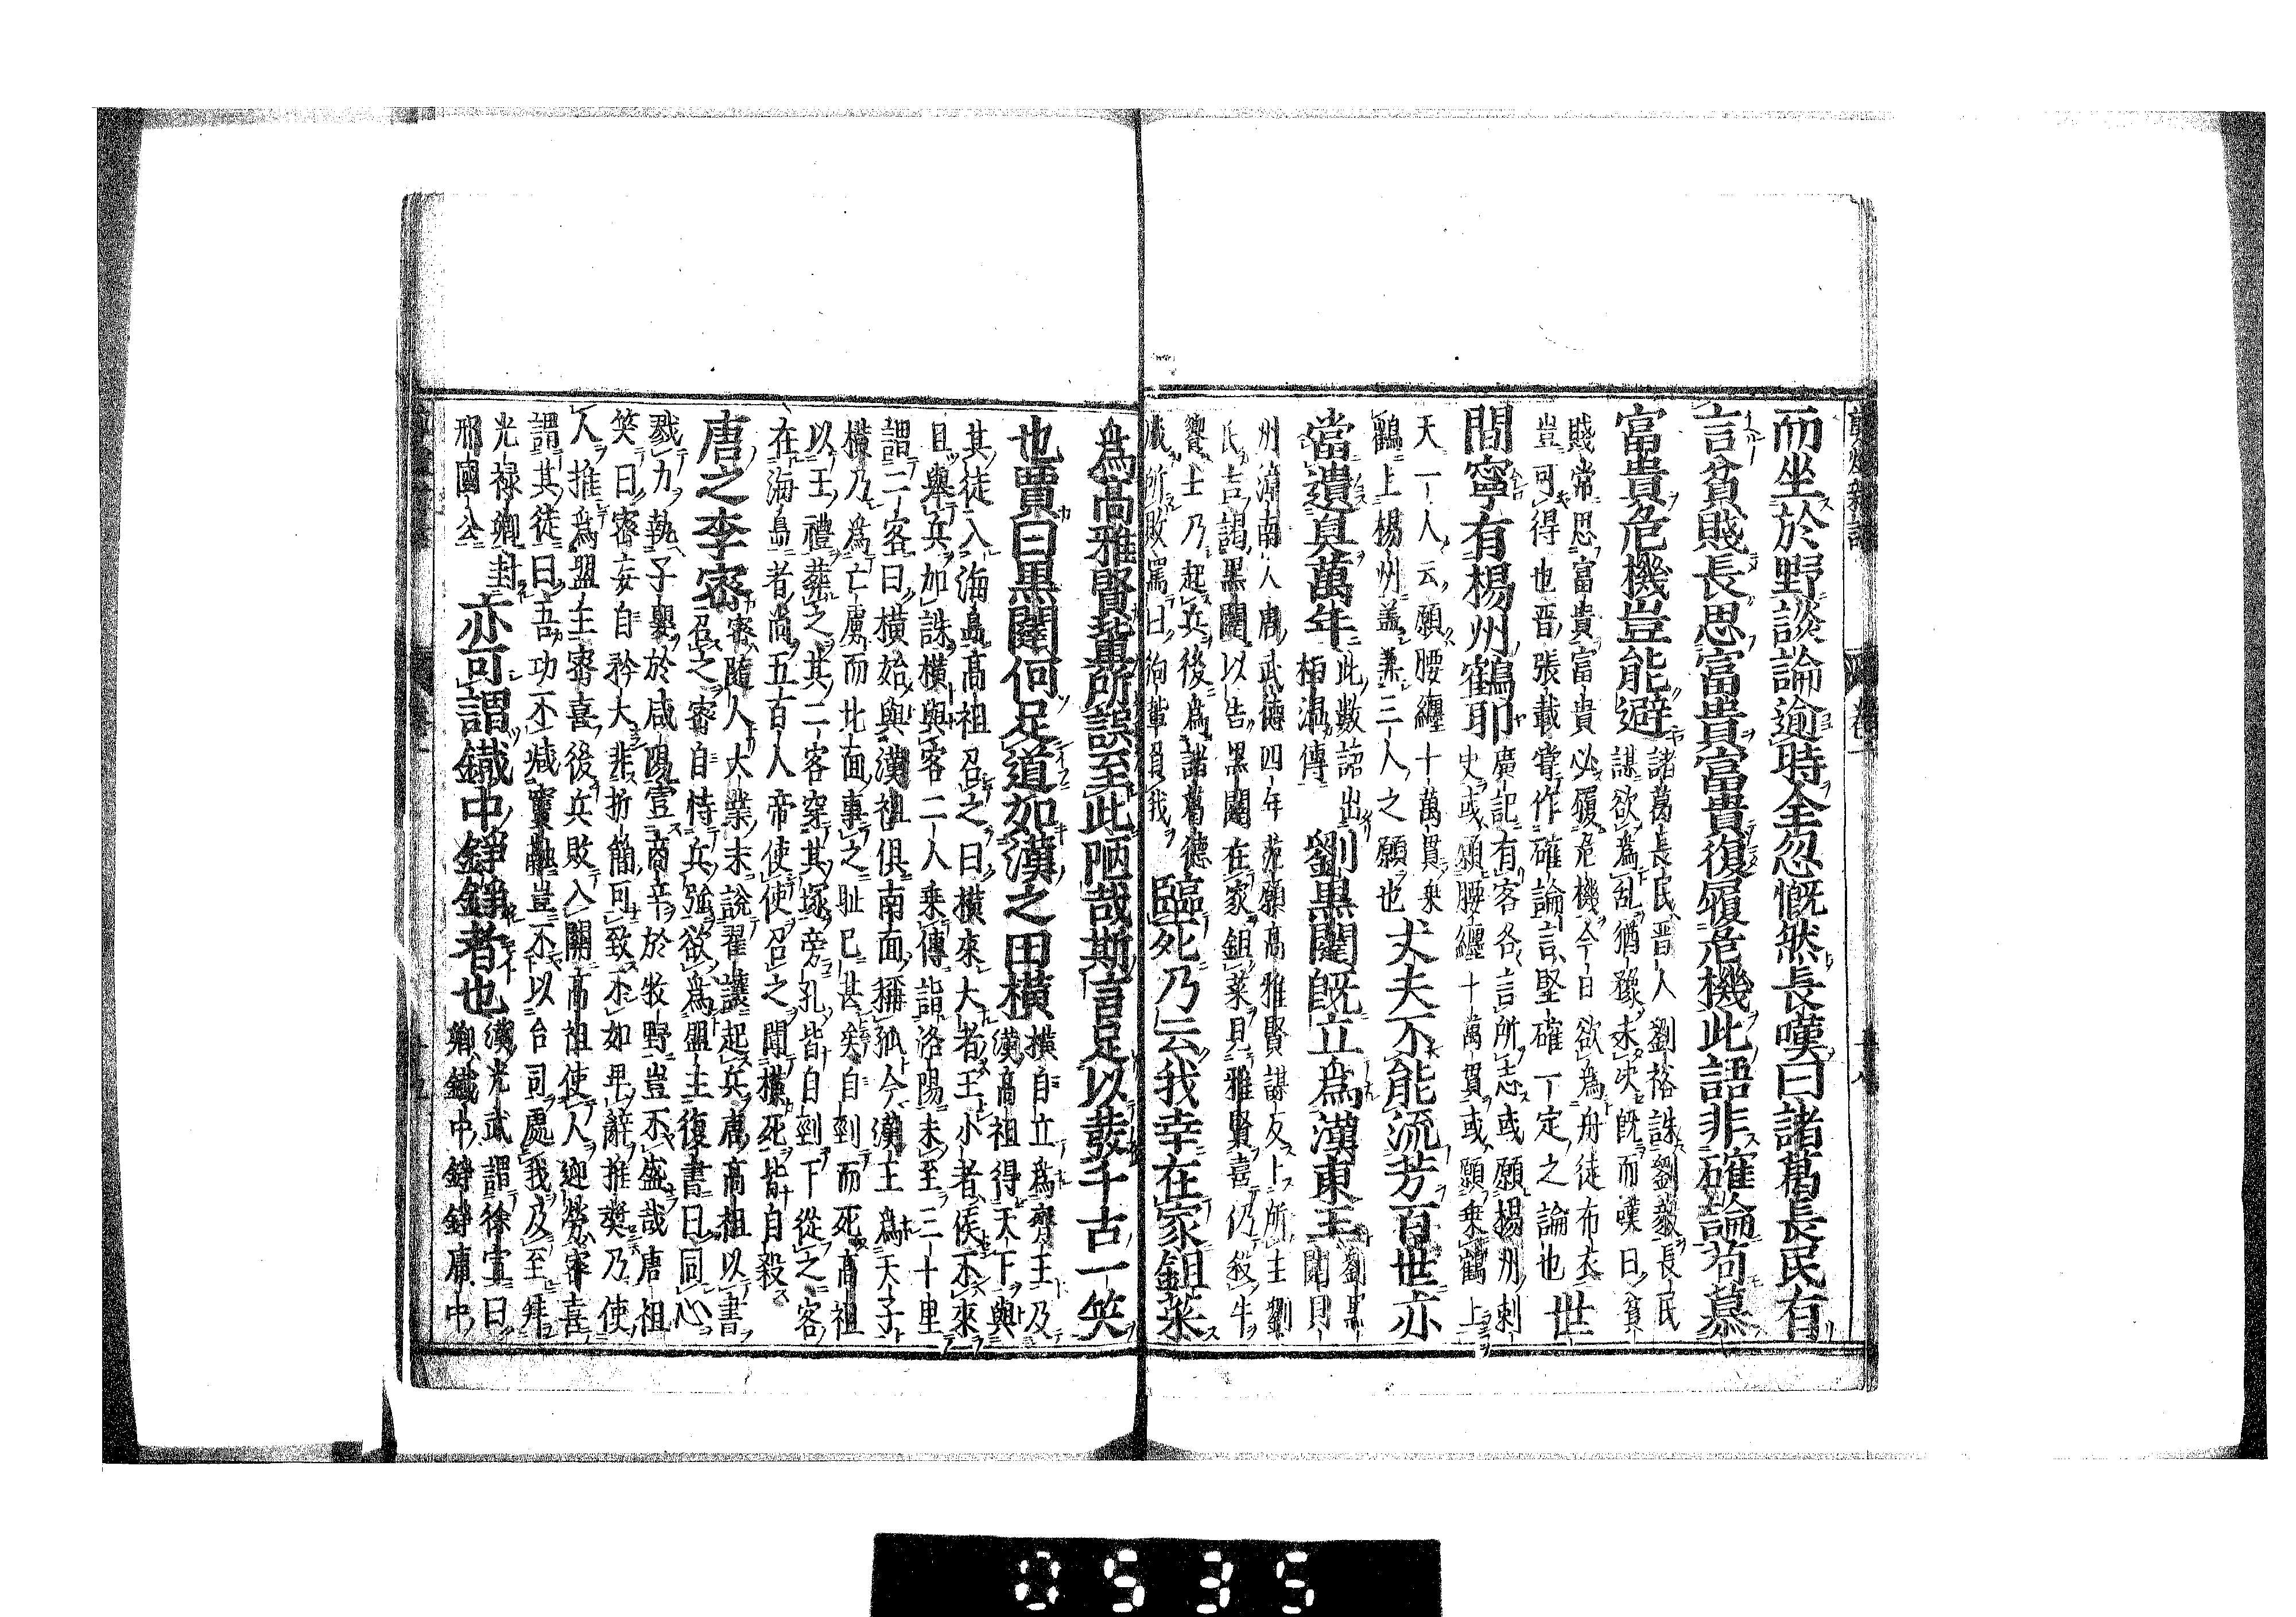 剪燈新話 卷一
而坐於野談論逾時全忽慨然長嘆曰諸葛長民有
言貧賤長思富貴富貴復履危機此語非確論苟慕
富貴危機豈能避
諸葛長民晋人劉裕誅劉毅長民
謀欲為乱猶豫未决既而嘆曰貧
賤常思富貴富貴必履危機今日欲為舟徒布衣
豈可得也晋張載嘗作確論言堅確一定之論也
世
間寧有楊州鶴耶
廣記有客各言所志或願揚州刺
史或願腰纏十萬貫或願乗鶴上
天一人云願腰纏十萬貫乗
鶴上楊州盖兼三人之願也
丈夫不能流芳百世亦
當遺臭萬年
此數語出
桓温傳
劉黒闥既立為漢東王
劉黒
闥貝
州漳南人唐武德四年范願高雅賢謀反卜所主劉
氏吉謁黒闥以告黒闥在家鉏菜見雅賢喜仍殺牛
饗士乃起兵後為諸葛德
威所敗罵曰狗輩負我
臨死乃云我幸在家鉏菜
為高雅賢輩所誤至此陋哉斯言足以發千古一笑
也賈曰黒闥何足道如漢之田横
横自立為齊王及
漢高祖得天下與
其徒入海島高祖召之曰横來大者王小者侯不來
且舉兵加誅横與客二人乗傳詣洛陽未至三十里
謂二客曰横始與漢祖俱南面稱孤今漢王為天子
横乃為亡虜而北面事之耻已甚矣自剄而死高祖
以王禮葬之其二客穿其塚旁孔皆自剄下從之客
在海島者尚五百人帝使使召之聞横死皆自殺
唐之李密
密隋人大業末說翟讓起兵唐高祖以書
召之密自恃兵強欲為盟主復書曰同心
戮力執子嬰於咸陽殪商辛於牧野豈不盛哉唐祖
笑曰密妄自矜大非折簡可致不如卑辭推奬乃使
人推為盟主密喜後兵敗入關高祖使人迎勞密喜
謂其徒曰吾功不减竇融豈不以台司處我及至拜
光禄卿封
邢國公
亦可謂鐡中錚錚者也
漢光武謂徐宣曰
卿鐡中錚錚庸中